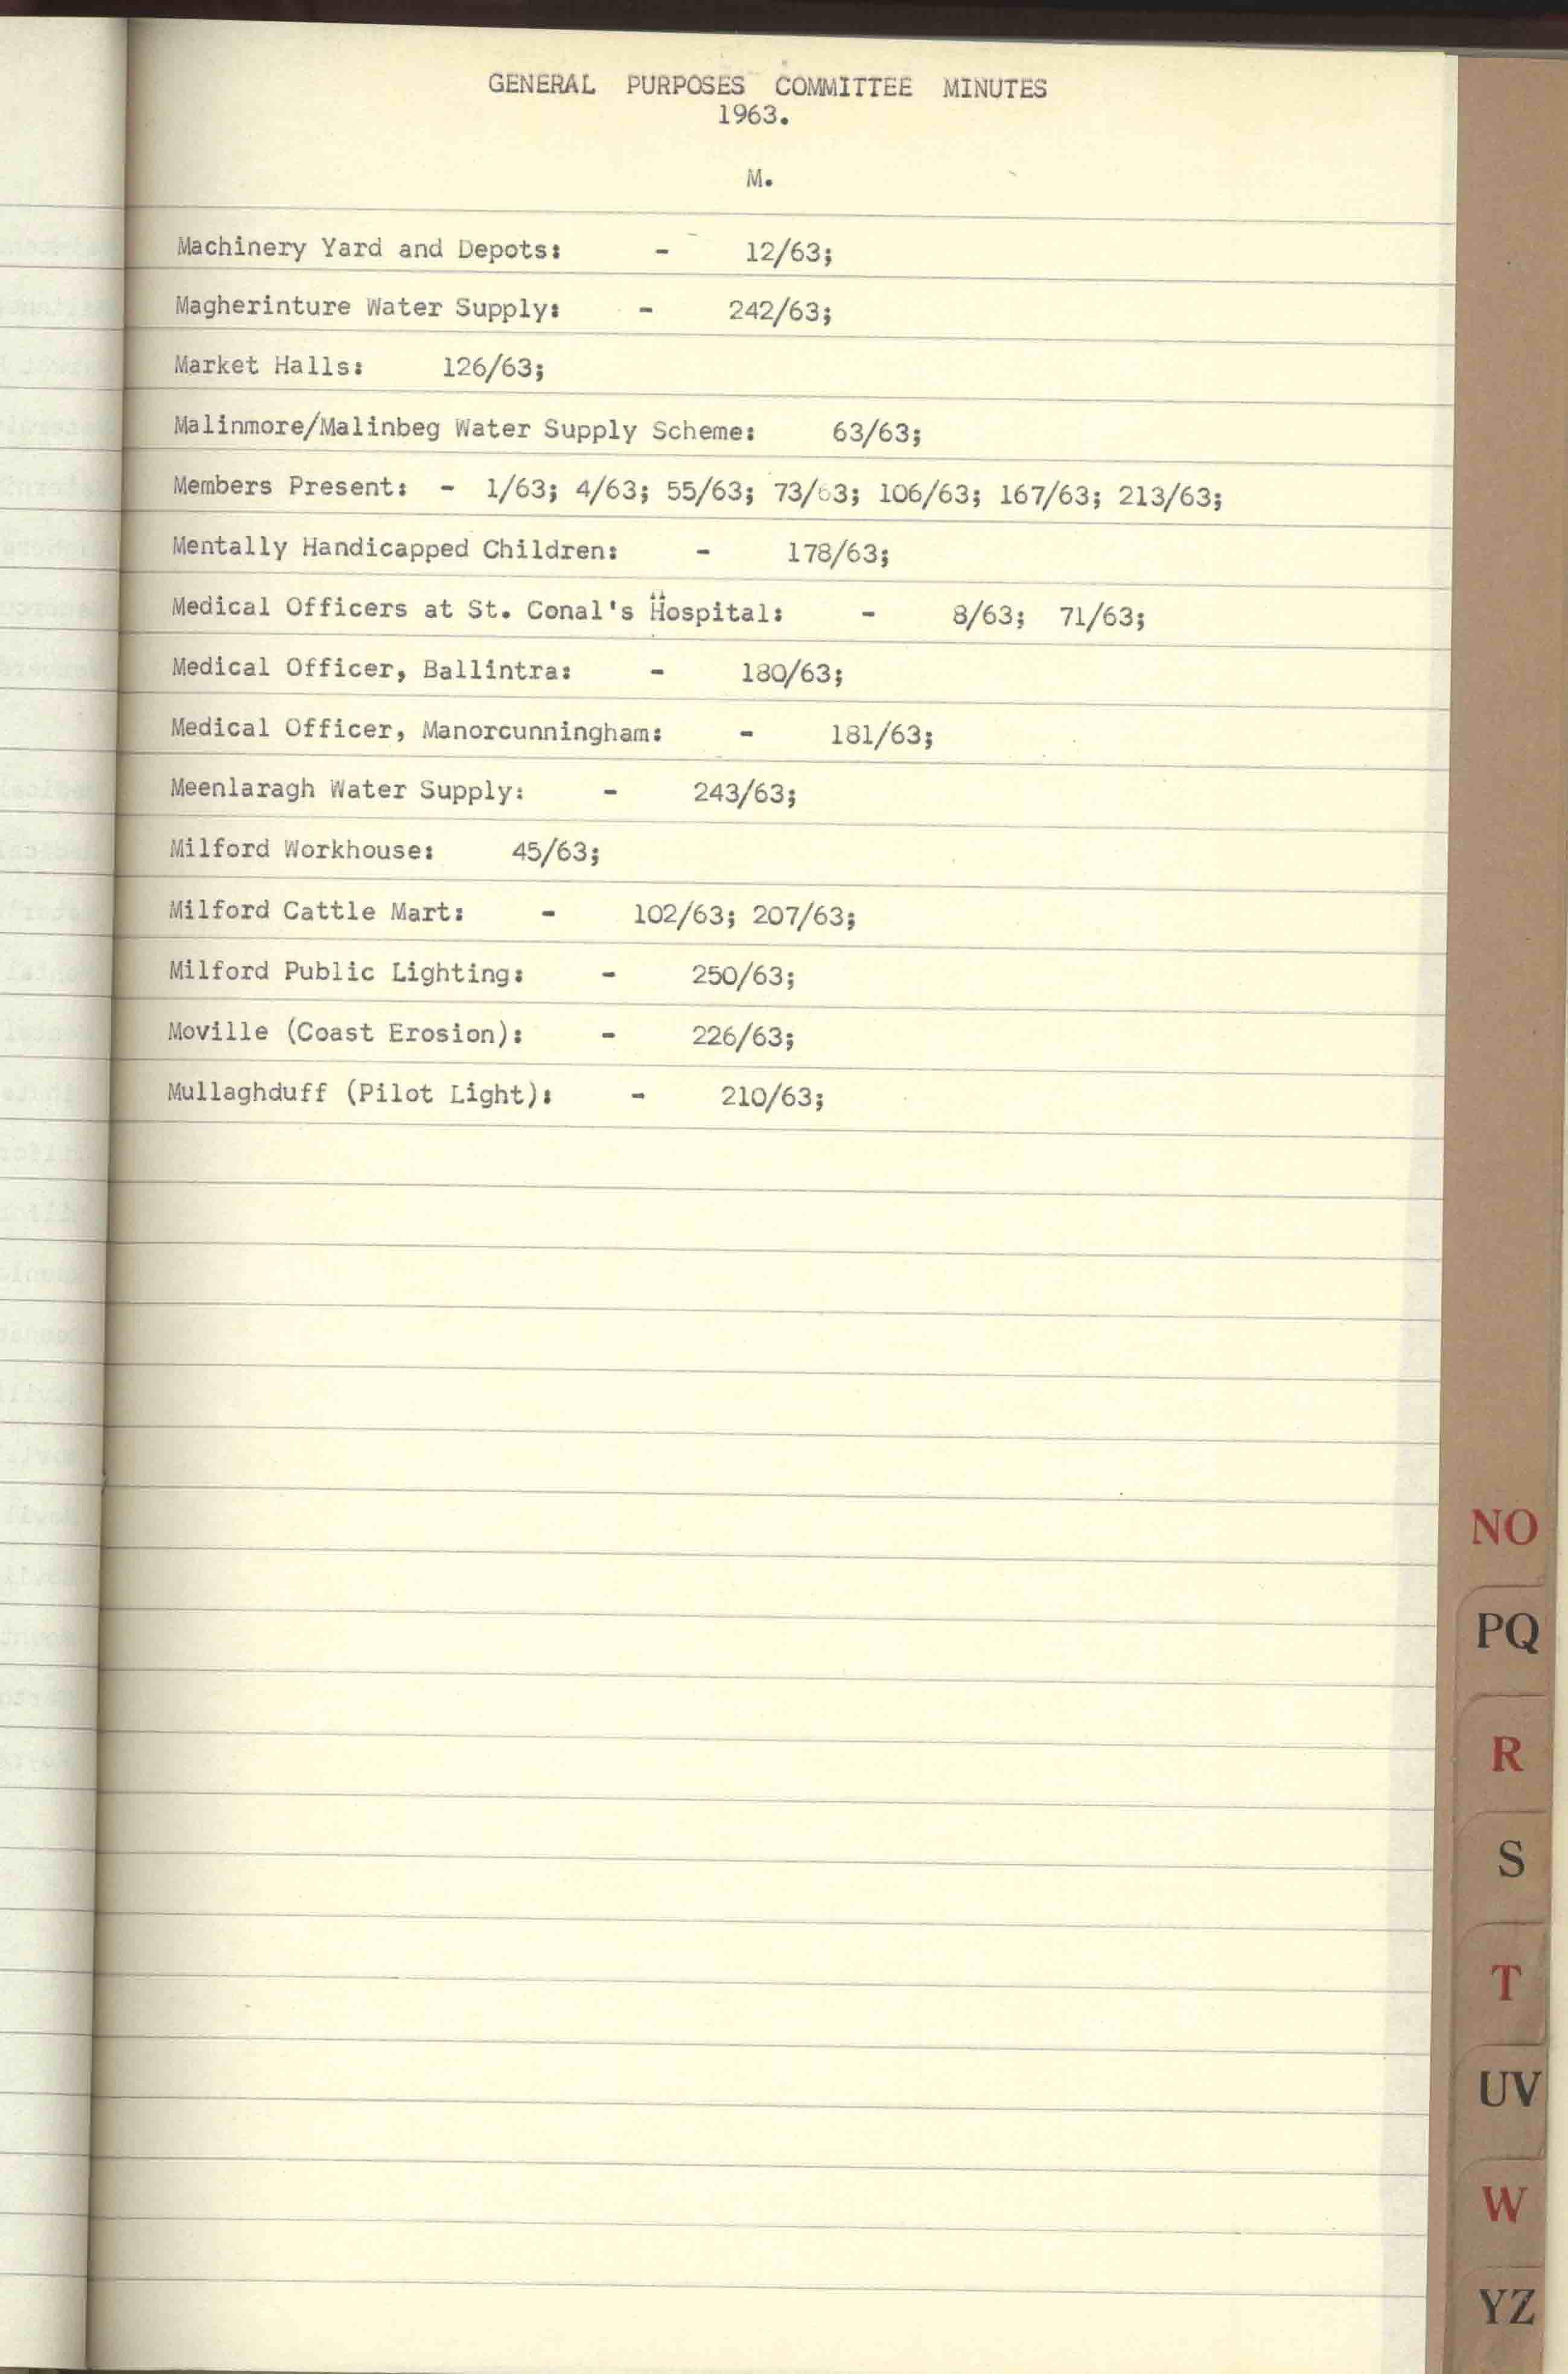 GENERAL PURPOSES COMMITTEE MINUTES
1963.
M.
Machinery Yard and Depots: - 12/63;
Magherinture Water Supply: - 242/63;
Market Halls: 126/63;
Malinmore/Malinbeg Water Supply Scheme: 63/63;
Members Present: - 1/63; 4/63; 55/63; 73/63; 106/63; 167/63; 213/63;
Mentally Handicapped Children: - 178/63;
Medical Officers at St. Conal's Hospital: - 8/63; 71/63;
Medical Officer, Ballintra: - 180/63;
Medical Officer, Manorcunningham: - 181/63;
Meenlaragh Water Supply: - 243/63;
Milford Workhouse: 45/63;
Milford Cattle Mart: - 102/63; 207/63;
Milford Public Lighting: - 250/63;
Moville (Coast Erosion): - 226/63;
Mullaghduff (Pilot Light): - 210/63;
NO
PQ
R
S
T
UV
W
YZ